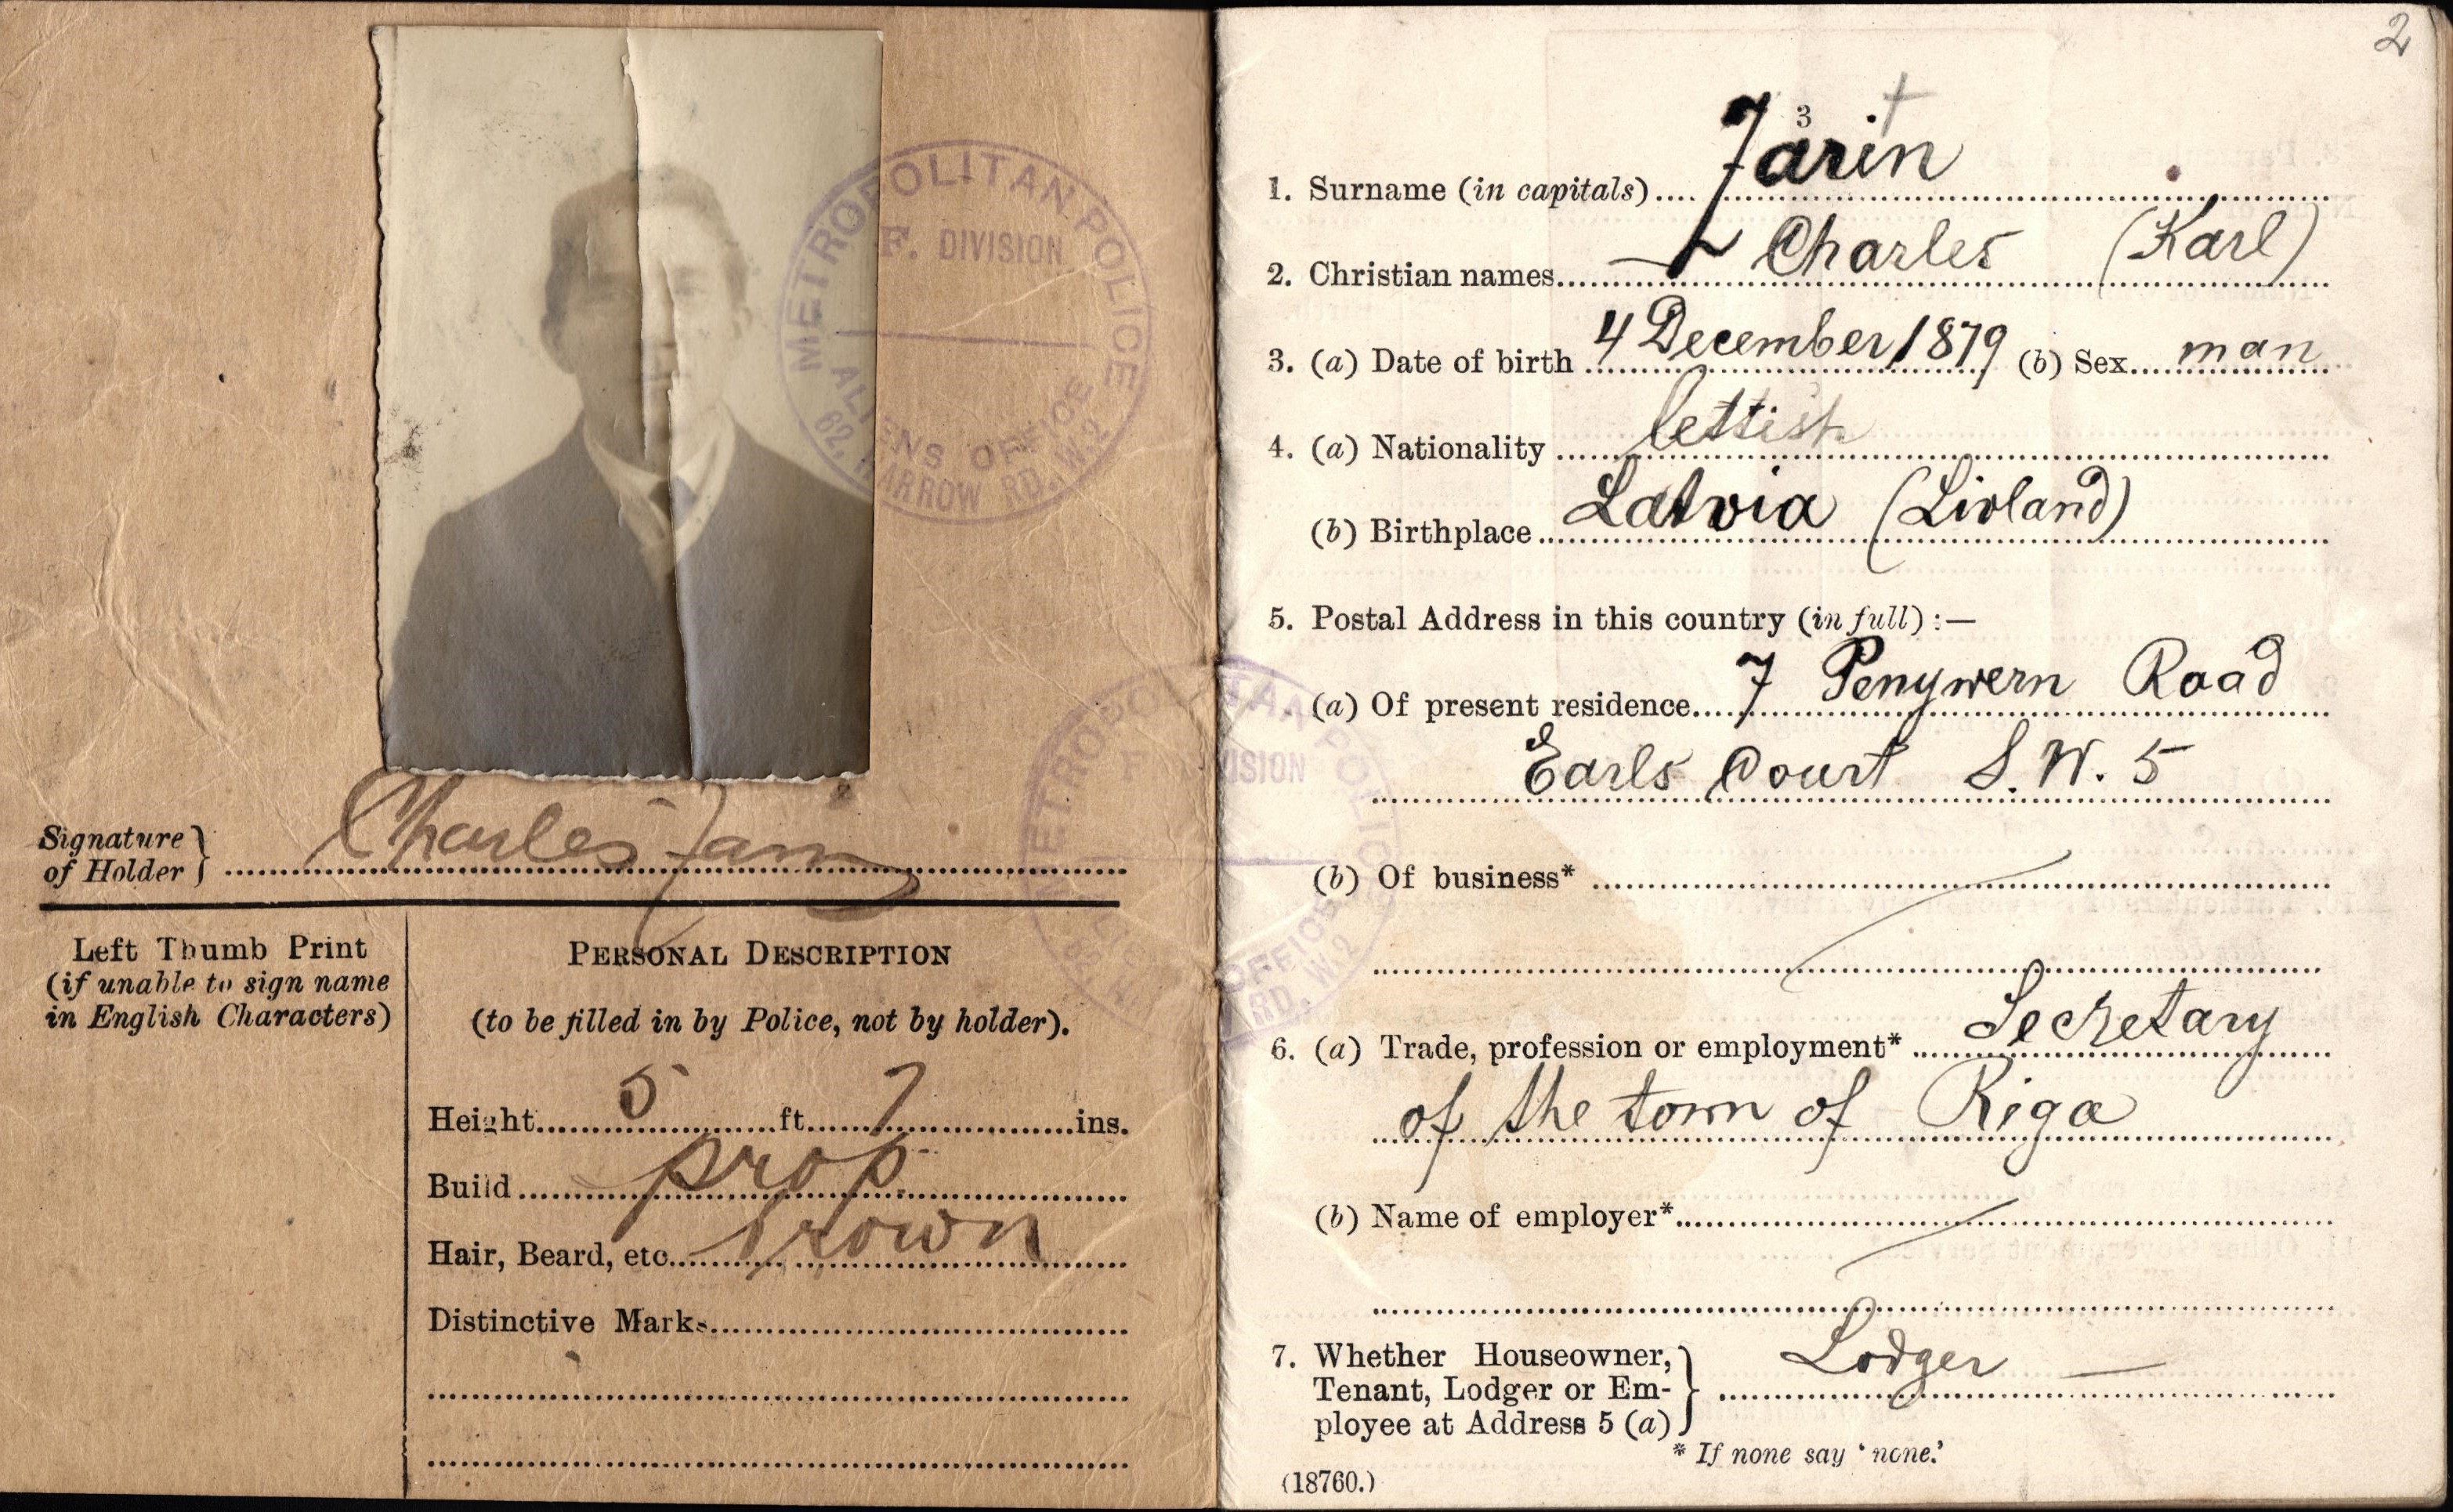 METROPOLITAN POLICE
F. DIVISION
ALIENS OFFICE
62, HARROW RD., W.2
Signature
of Holder
Charles Zarin
Left Thumb Print
(if unable to sign name
in English Characters)
PERSONAL DESCRIPTION
(to be filled in by Police, not by holder).
Height 5 ft 7 ins.
Build prop
Hair, Beard, etc. brown
Distinctive Marks
2
3
1. Surname (in capitals) Zarin
2. Christian names Charles (Karl)
3. (a) Date of birth 4 December 1879 (b) Sex man
4. (a) Nationality lettish
(b) Birthplace Latvia (Livland)
5. Postal Address in this country (in full) :—
(a) Of present residence 7 Penywern Road
Earls Court S.W. 5
(b) Of business*
6. (a) Trade, profession or employment* Secretary
of the town of Riga
(b) Name of employer*
7. Whether Houseowner,
Tenant, Lodger or Em-
ployee at Address 5 (a)
Lodger —
* If none say 'none.'
(18760.)
METROPOLITAN POLICE
DIVISION
OFFICE
RD., W.2